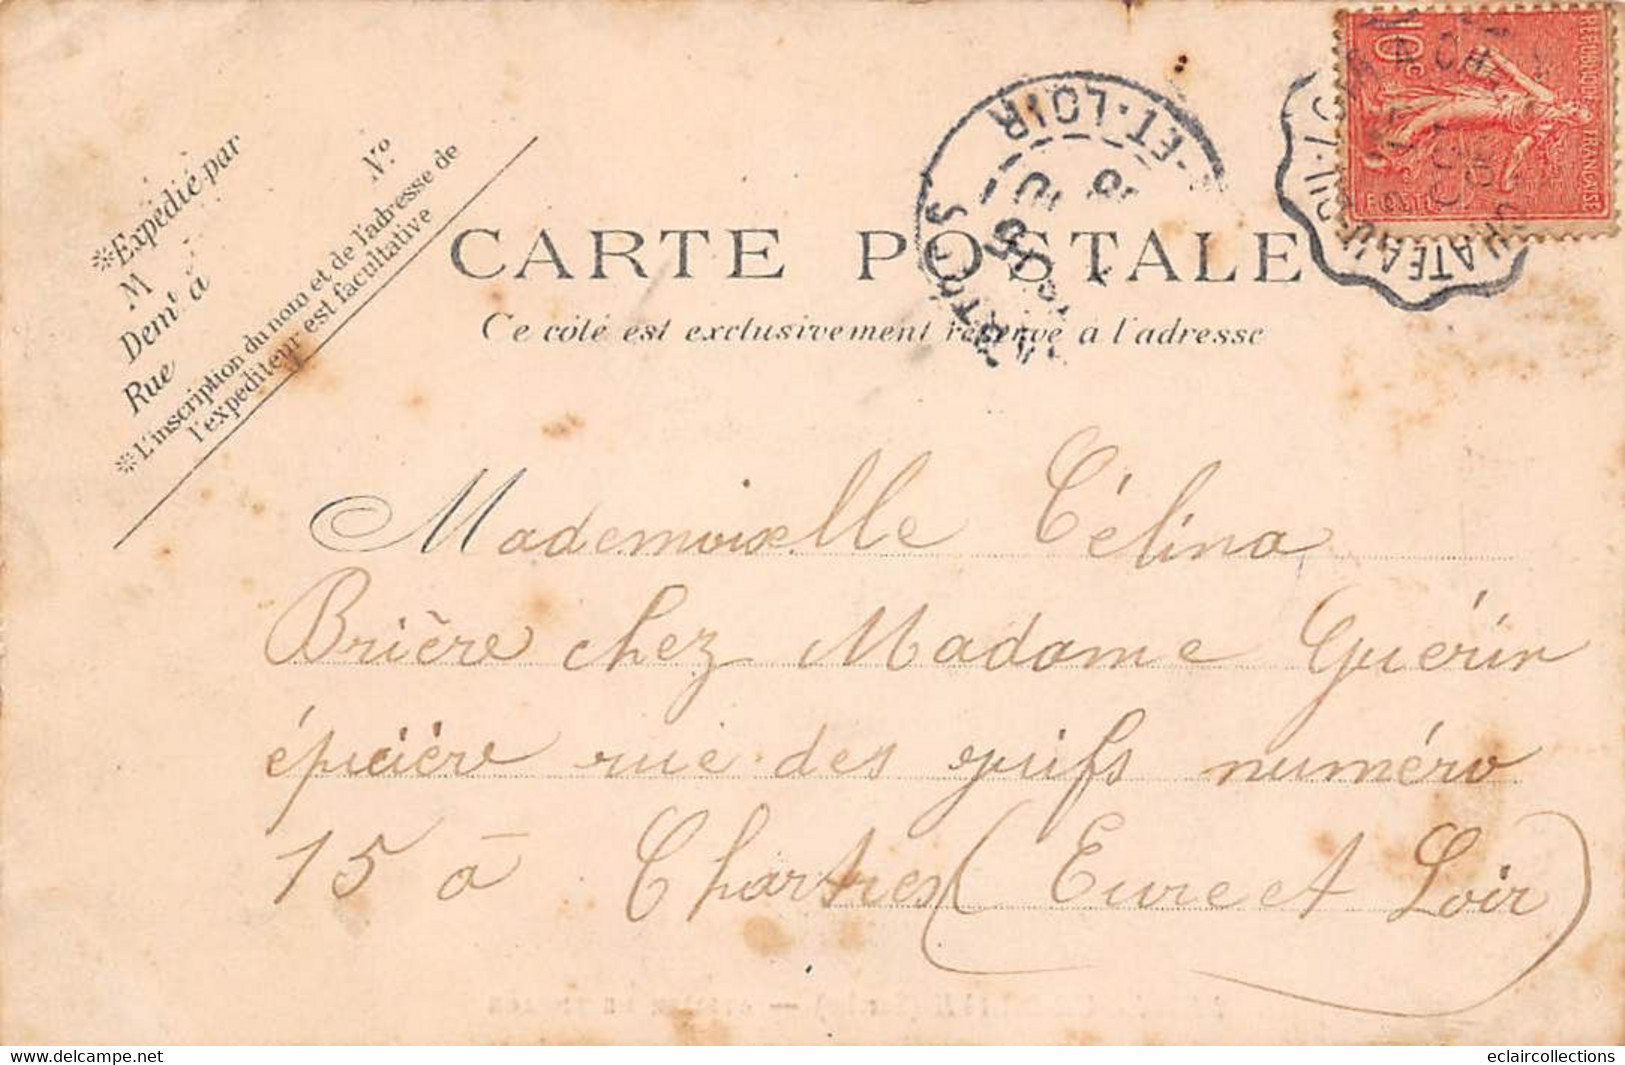 ※Expédié par
M
Demt à
Rue
No.
※L'inscription du nom et de l'adresse de
l'expéditeur est facultative
CARTE POSTALE
Ce côté est exclusivement réservé à l'adresse
ET-LOIR
10c
REPUBLIQUE FRANÇAISE
Mademoiselle Célina
Brière chez Madame Guérin
épicière rue des juifs numéro
15 à Chartres (Eure et Loir)
eclaircollections